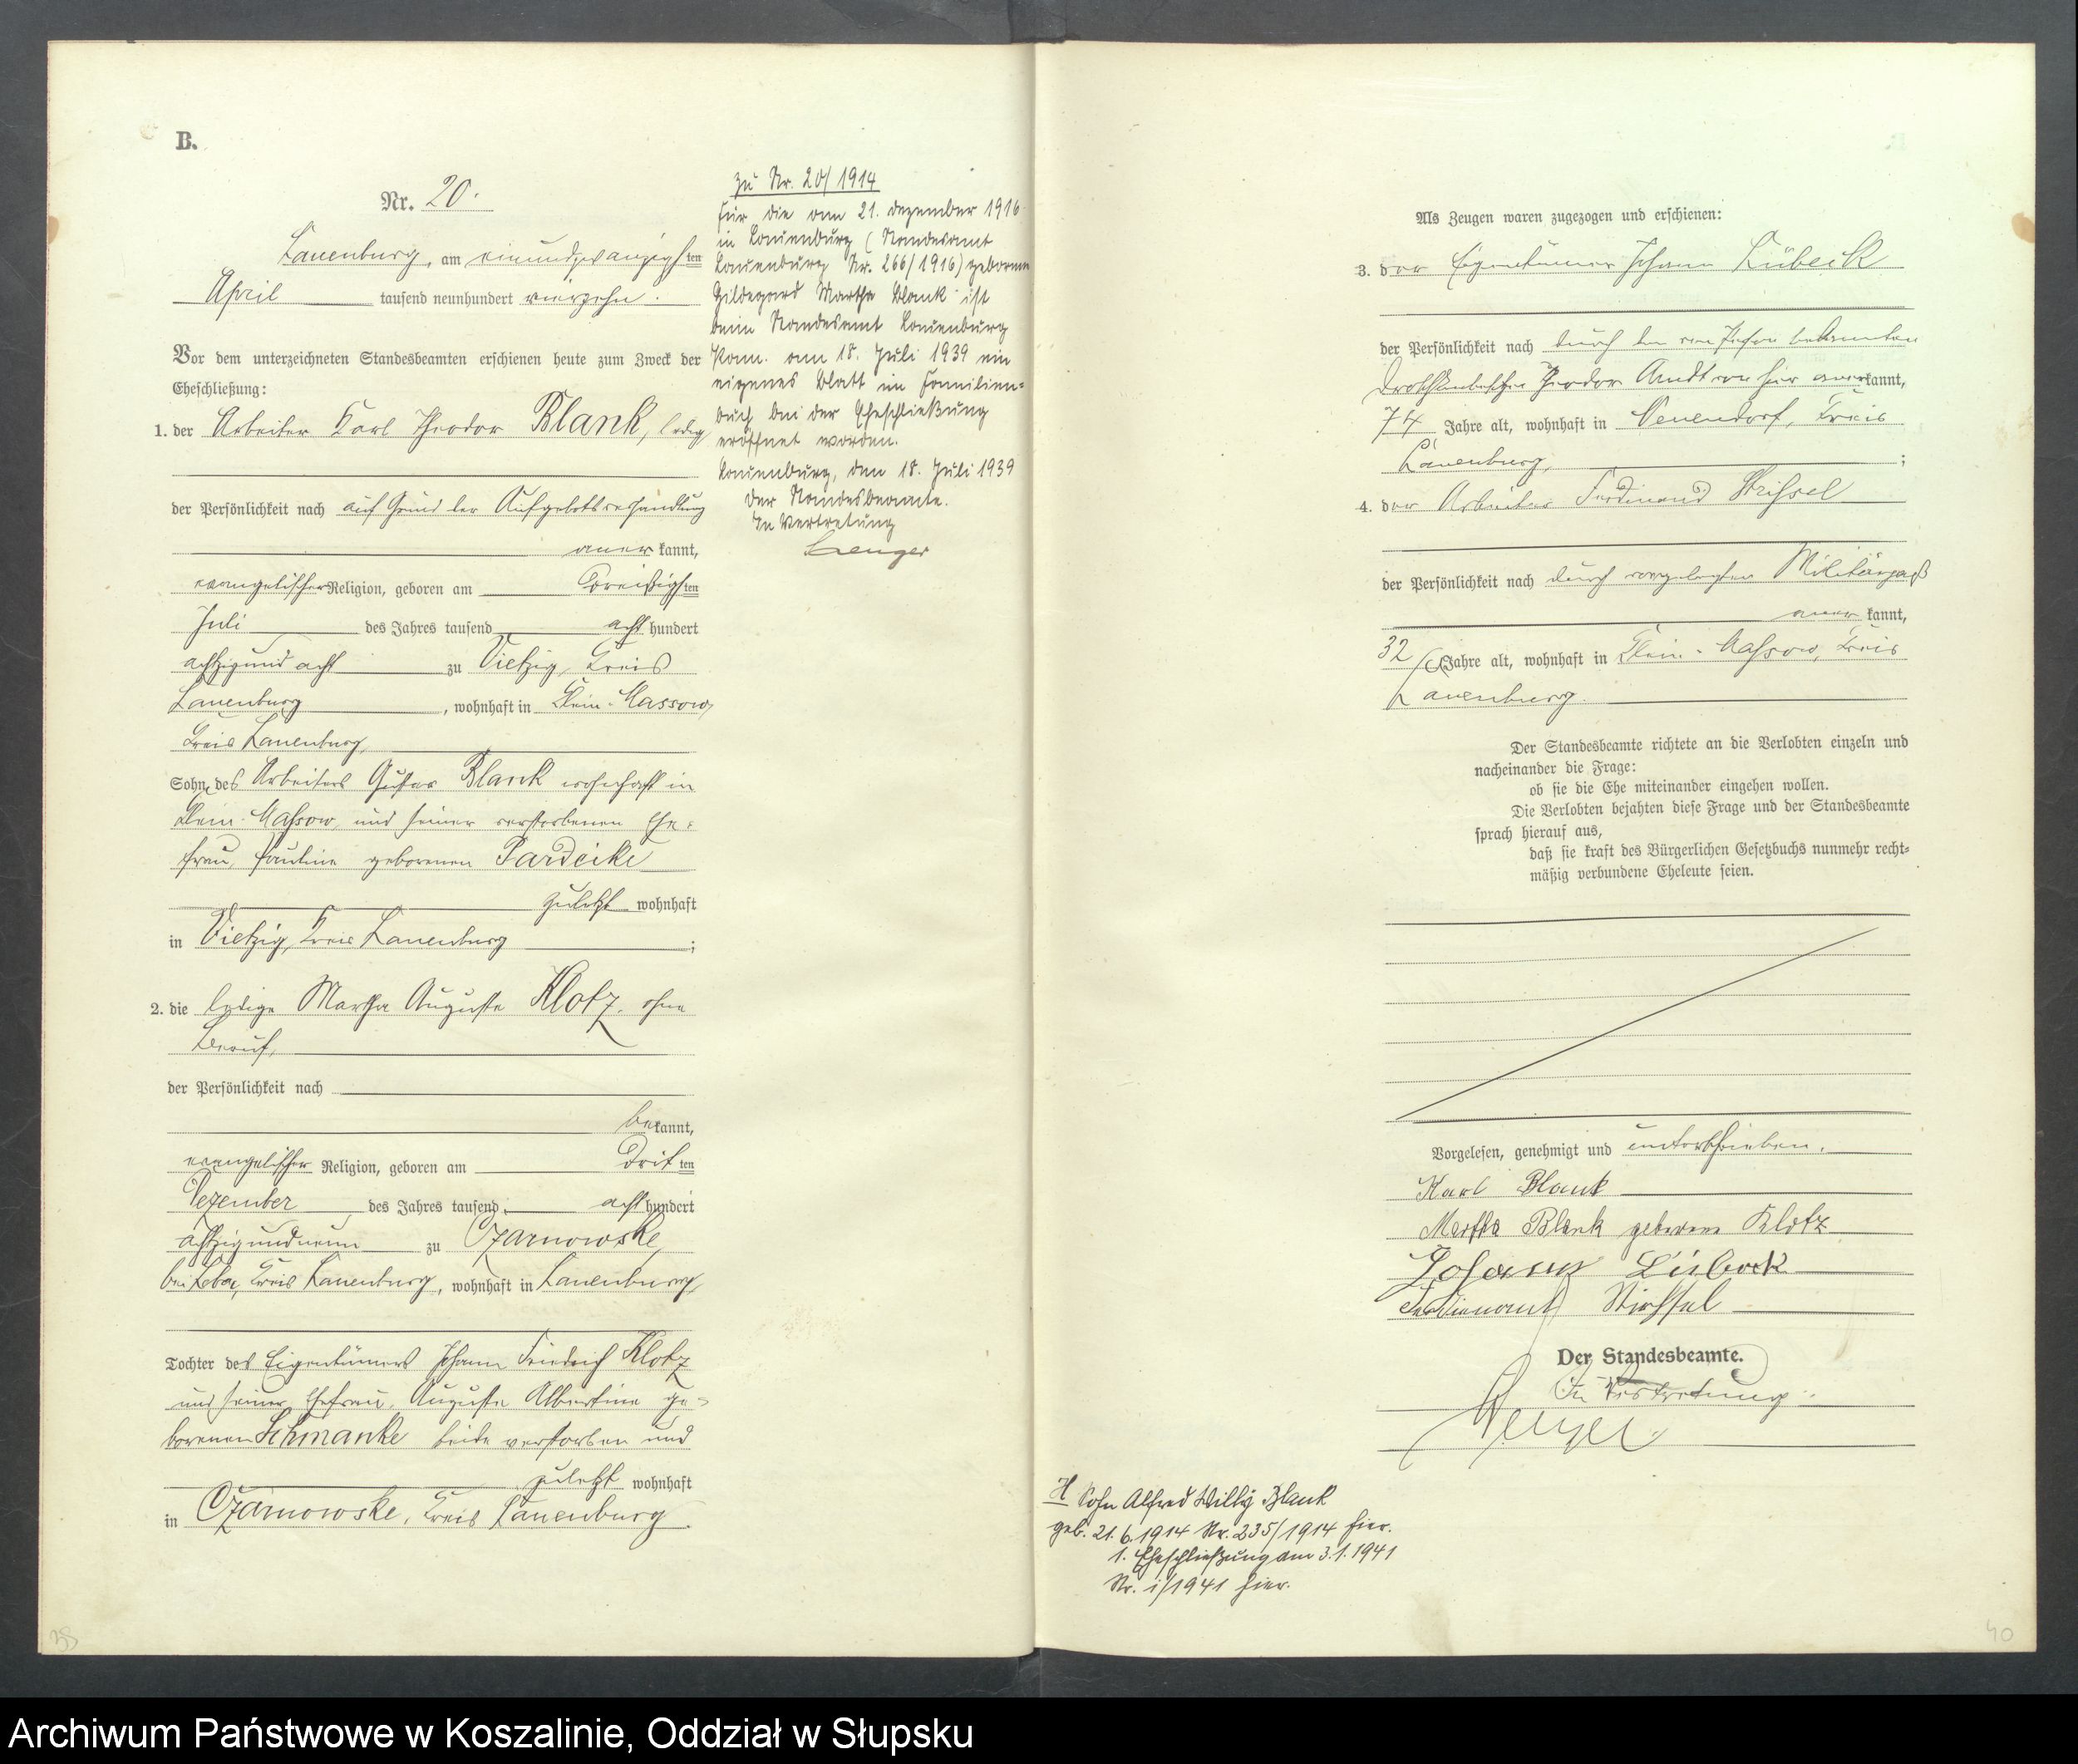 B.
Nr. 20.
Lauenburg, am einundzwanzigsten
April tausend neunhundert vierzehn.
Vor dem unterzeichneten Standesbeamten erschienen heute zum Zweck der
Eheschließung:
1. der Arbeiter Karl Theodor Blank, ledig
der Persönlichkeit nach auf Grund der Aufgebotsverhandlung
anerkannt,
evangelischer Religion, geboren am dreißigsten
Juli des Jahres tausend achthundert
achtzigundacht zu Vietzig, Kreis
Lauenburg, wohnhaft in Klein-Massow,
Kreis Lauenburg,
Sohn des Arbeiters Gustav Blank wohnhaft in
Klein-Massow, und seiner verstorbenen Ehe-
frau, Pauline geborenen Pardeike
zuletzt wohnhaft
in Vietzig, Kreis Lauenburg;
2. die ledige Martha Auguste Klotz, ohne
Beruf,
der Persönlichkeit nach
bekannt,
evangelischer Religion, geboren am dritten
Dezember des Jahres tausend achthundert
achtzigundneun zu Czarnowske,
bei Leba, Kreis Lauenburg, wohnhaft in Lauenburg,
Tochter des Eigentümers Johann Friedrich Klotz
und seiner Ehefrau, Auguste Albertine ge-
borenen Schmanke beide verstorben und
zuletzt wohnhaft
in Czarnowske, Kreis Lauenburg.
zu Nr. 20/1914
Für die am 21. Dezember 1916
in Lauenburg (Standesamt
Lauenburg Nr. 266/1916) geborene
Hildegard Martha Blank ist
beim Standesamt Lauenburg
Pom. am 18. Juli 1939 ein
eigenes Blatt im Familien-
buch bei der Eheschließung
eröffnet worden.
Lauenburg, den 18. Juli 1939
Der Standesbeamte.
In Vertretung
Als Zeugen waren zugezogen und erschienen:
3. der Eigentümer Johann Lübeck
der Persönlichkeit nach durch den von Person bekannten
Theodor Arndt von hier anerkannt,
74 Jahre alt, wohnhaft in Neuendorf, Kreis
Lauenburg,;
4. der Arbeiter Ferdinand
der Persönlichkeit nach durch vorgelegten Militärpaß
anerkannt,
32 Jahre alt, wohnhaft in Klein-Massow, Kreis
Lauenburg.
Der Standesbeamte richtete an die Verlobten einzeln und
nacheinander die Frage:
ob sie die Ehe miteinander eingehen wollen.
Die Verlobten bejahten diese Frage und der Standesbeamte
sprach hierauf aus,
daß sie kraft des Bürgerlichen Gesetzbuchs nunmehr recht-
mäßig verbundene Eheleute seien.
Vorgelesen, genehmigt und unterschrieben.
Karl Blank
Martha Blank geborene Klotz
Johann Lübeck
Der Standesbeamte.
In Vertretung:
H Sohn Alfred Willy Blank
geb. 21.6.1914 Nr. 235/1914 hier.
1. Eheschließung am 3.1.1941
Nr. 1/1941 hier.
40
Archiwum Państwowe w Koszalinie, Oddział w Słupsku